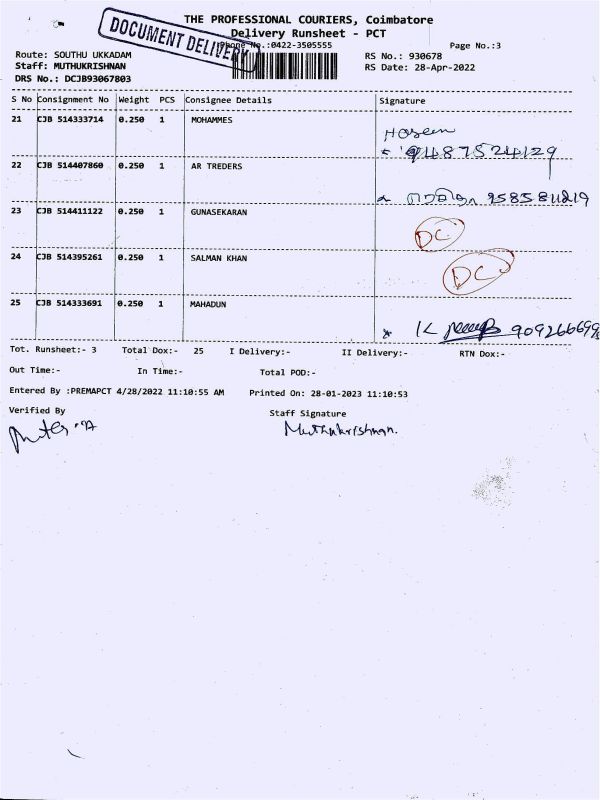 THE PROFESSIONAL COURIERS, Coimbatore
DOCUMENT DELIVERY
Delivery Runsheet - PCT
Phone No.:0422-3505555
Page No.:3
Route: SOUTHU UKKADAM
RS No.: 930678
Staff: MUTHUKRISHNAN
RS Date: 28-Apr-2022
DRS No.: DCJB93067803
S No Consignment No Weight PCS Consignee Details Signature
21 CJB 514333714 0.250 1 MOHAMMES
Hoseen
9487524129
22 CJB 514407860 0.250 1 AR TREDERS
9585811219
23 CJB 514411122 0.250 1 GUNASEKARAN
DC
24 CJB 514395261 0.250 1 SALMAN KHAN
DC
25 CJB 514333691 0.250 1 MAHADUN
K 909266699
Tot. Runsheet:- 3 Total Dox:- 25 I Delivery:- II Delivery:- RTN Dox:-
Out Time:- In Time:- Total POD:-
Entered By :PREMAPCT 4/28/2022 11:10:55 AM Printed On: 28-01-2023 11:10:53
Verified By Staff Signature
Muthukrishnan.